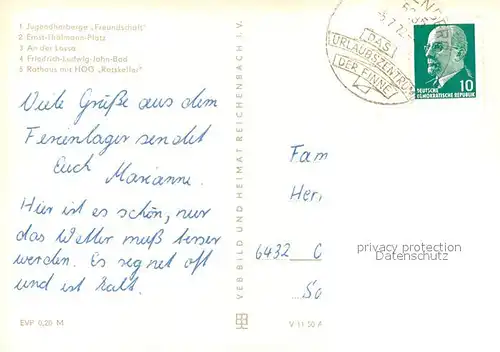 1 Jugendherberge „Freundschaft"
2 Ernst-Thälmann-Platz
3 An der Lossa
4 Friedrich-Ludwig-Jahn-Bad
5 Rathaus mit HOG „Ratskeller"
Viele Grüße aus dem
Ferienlager sendet
Euch
Marianne.
Hier ist es schön, nur
das Wetter muß besser
werden. Es regnet oft
und ist kalt.
EVP 0,20 M
VEB BILD UND HEIMAT REICHENBACH I. V.
DAS
URLAUBSZENTRUM
DER FINNE
10
DEUTSCHE
DEMOKRATISCHE REPUBLIK
Fam
Her
6432
privacy protection
Datenschutz
So
V 11 50 A